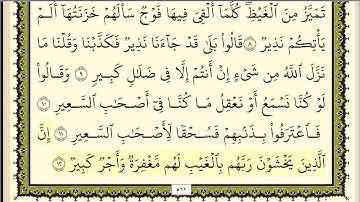 تَمَيَّزُ مِنَ ٱلْغَيْظِ ۖ كُلَّمَآ أُلْقِىَ فِيهَا فَوْجٌ سَأَلَهُمْ خَزَنَتُهَآ أَلَمْ
يَأْتِكُمْ نَذِيرٌ ۝٨ قَالُوا۟ بَلَىٰ قَدْ جَآءَنَا نَذِيرٌ فَكَذَّبْنَا وَقُلْنَا مَا
نَزَّلَ ٱللَّهُ مِن شَىْءٍ إِنْ أَنتُمْ إِلَّا فِى ضَلَٰلٍ كَبِيرٍ ۝٩ وَقَالُوا۟
لَوْ كُنَّا نَسْمَعُ أَوْ نَعْقِلُ مَا كُنَّا فِىٓ أَصْحَٰبِ ٱلسَّعِيرِ ۝١٠
فَٱعْتَرَفُوا۟ بِذَنۢبِهِمْ فَسُحْقًا لِّأَصْحَٰبِ ٱلسَّعِيرِ ۝١١ إِنَّ
ٱلَّذِينَ يَخْشَوْنَ رَبَّهُم بِٱلْغَيْبِ لَهُم مَّغْفِرَةٌ وَأَجْرٌ كَبِيرٌ ۝١٢
٥٦٢